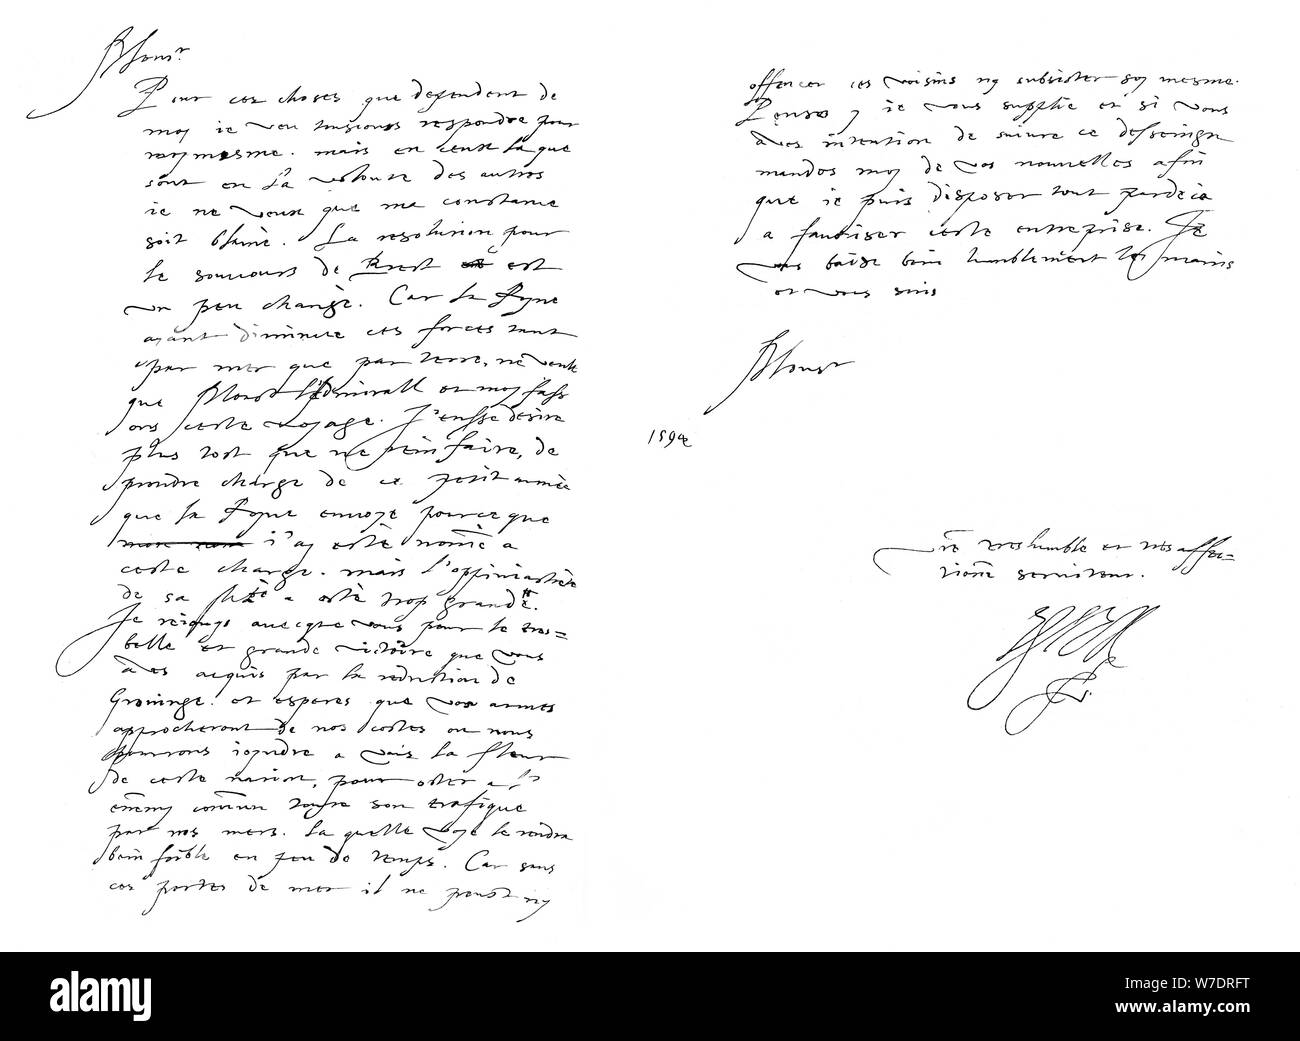 Monsr
Pour ces choses que dependent de
moy ie veu tousiours respondre pour
moymesme. mais en ceux la que
sont en la volonte des autres
ie ne veux que ma constance
soit blamè. La resolution pour
le secours de Brest est
un peu changè. Car la Royne
ayant diminue ces forces tant
par mer que par terre, ne veult
que Monsr l'Admirall et moy fass
ons ceste voyage. J'eusse desire
plus tost que ne rein faire, de
prendre charge de ce petit armée
que la Royne envoye pource que
i'ay estè nomè a
ceste charge. mais l'oppiniastrete
de sa Mte a estè trop grande.
Je reiouys avecque vous pour le tres=
belle et grande victoire que vous
aves acquis par la reduction de
Groninge. et esperes que vos armes
approcheront de nos costes ou nous
pourrons ioyndre a vous la fleur
de ceste nation, pour oster a l'
enemy comun toute son trafique
par nos mers. la quelle voye le rendra
bien foible en peu de temps. Car sans
ces portes de mer il ne peust ny
offencer ces voisins ny subsister soy mesme.
Penses y ie vous supplie et si vous
aves intention de suivre ce desseingn
mandes moy de vos nouvelles afin
que ie puis disposer tout pardeca
a favoriser ceste entreprise. Je
vous baise bien humblement les mains
et vous suis
Monsr
1594
Vre treshumble et tresaffec=
tionne serviteur.
Essex
alamy
alamy
Image ID: W7DRFT
www.alamy.com